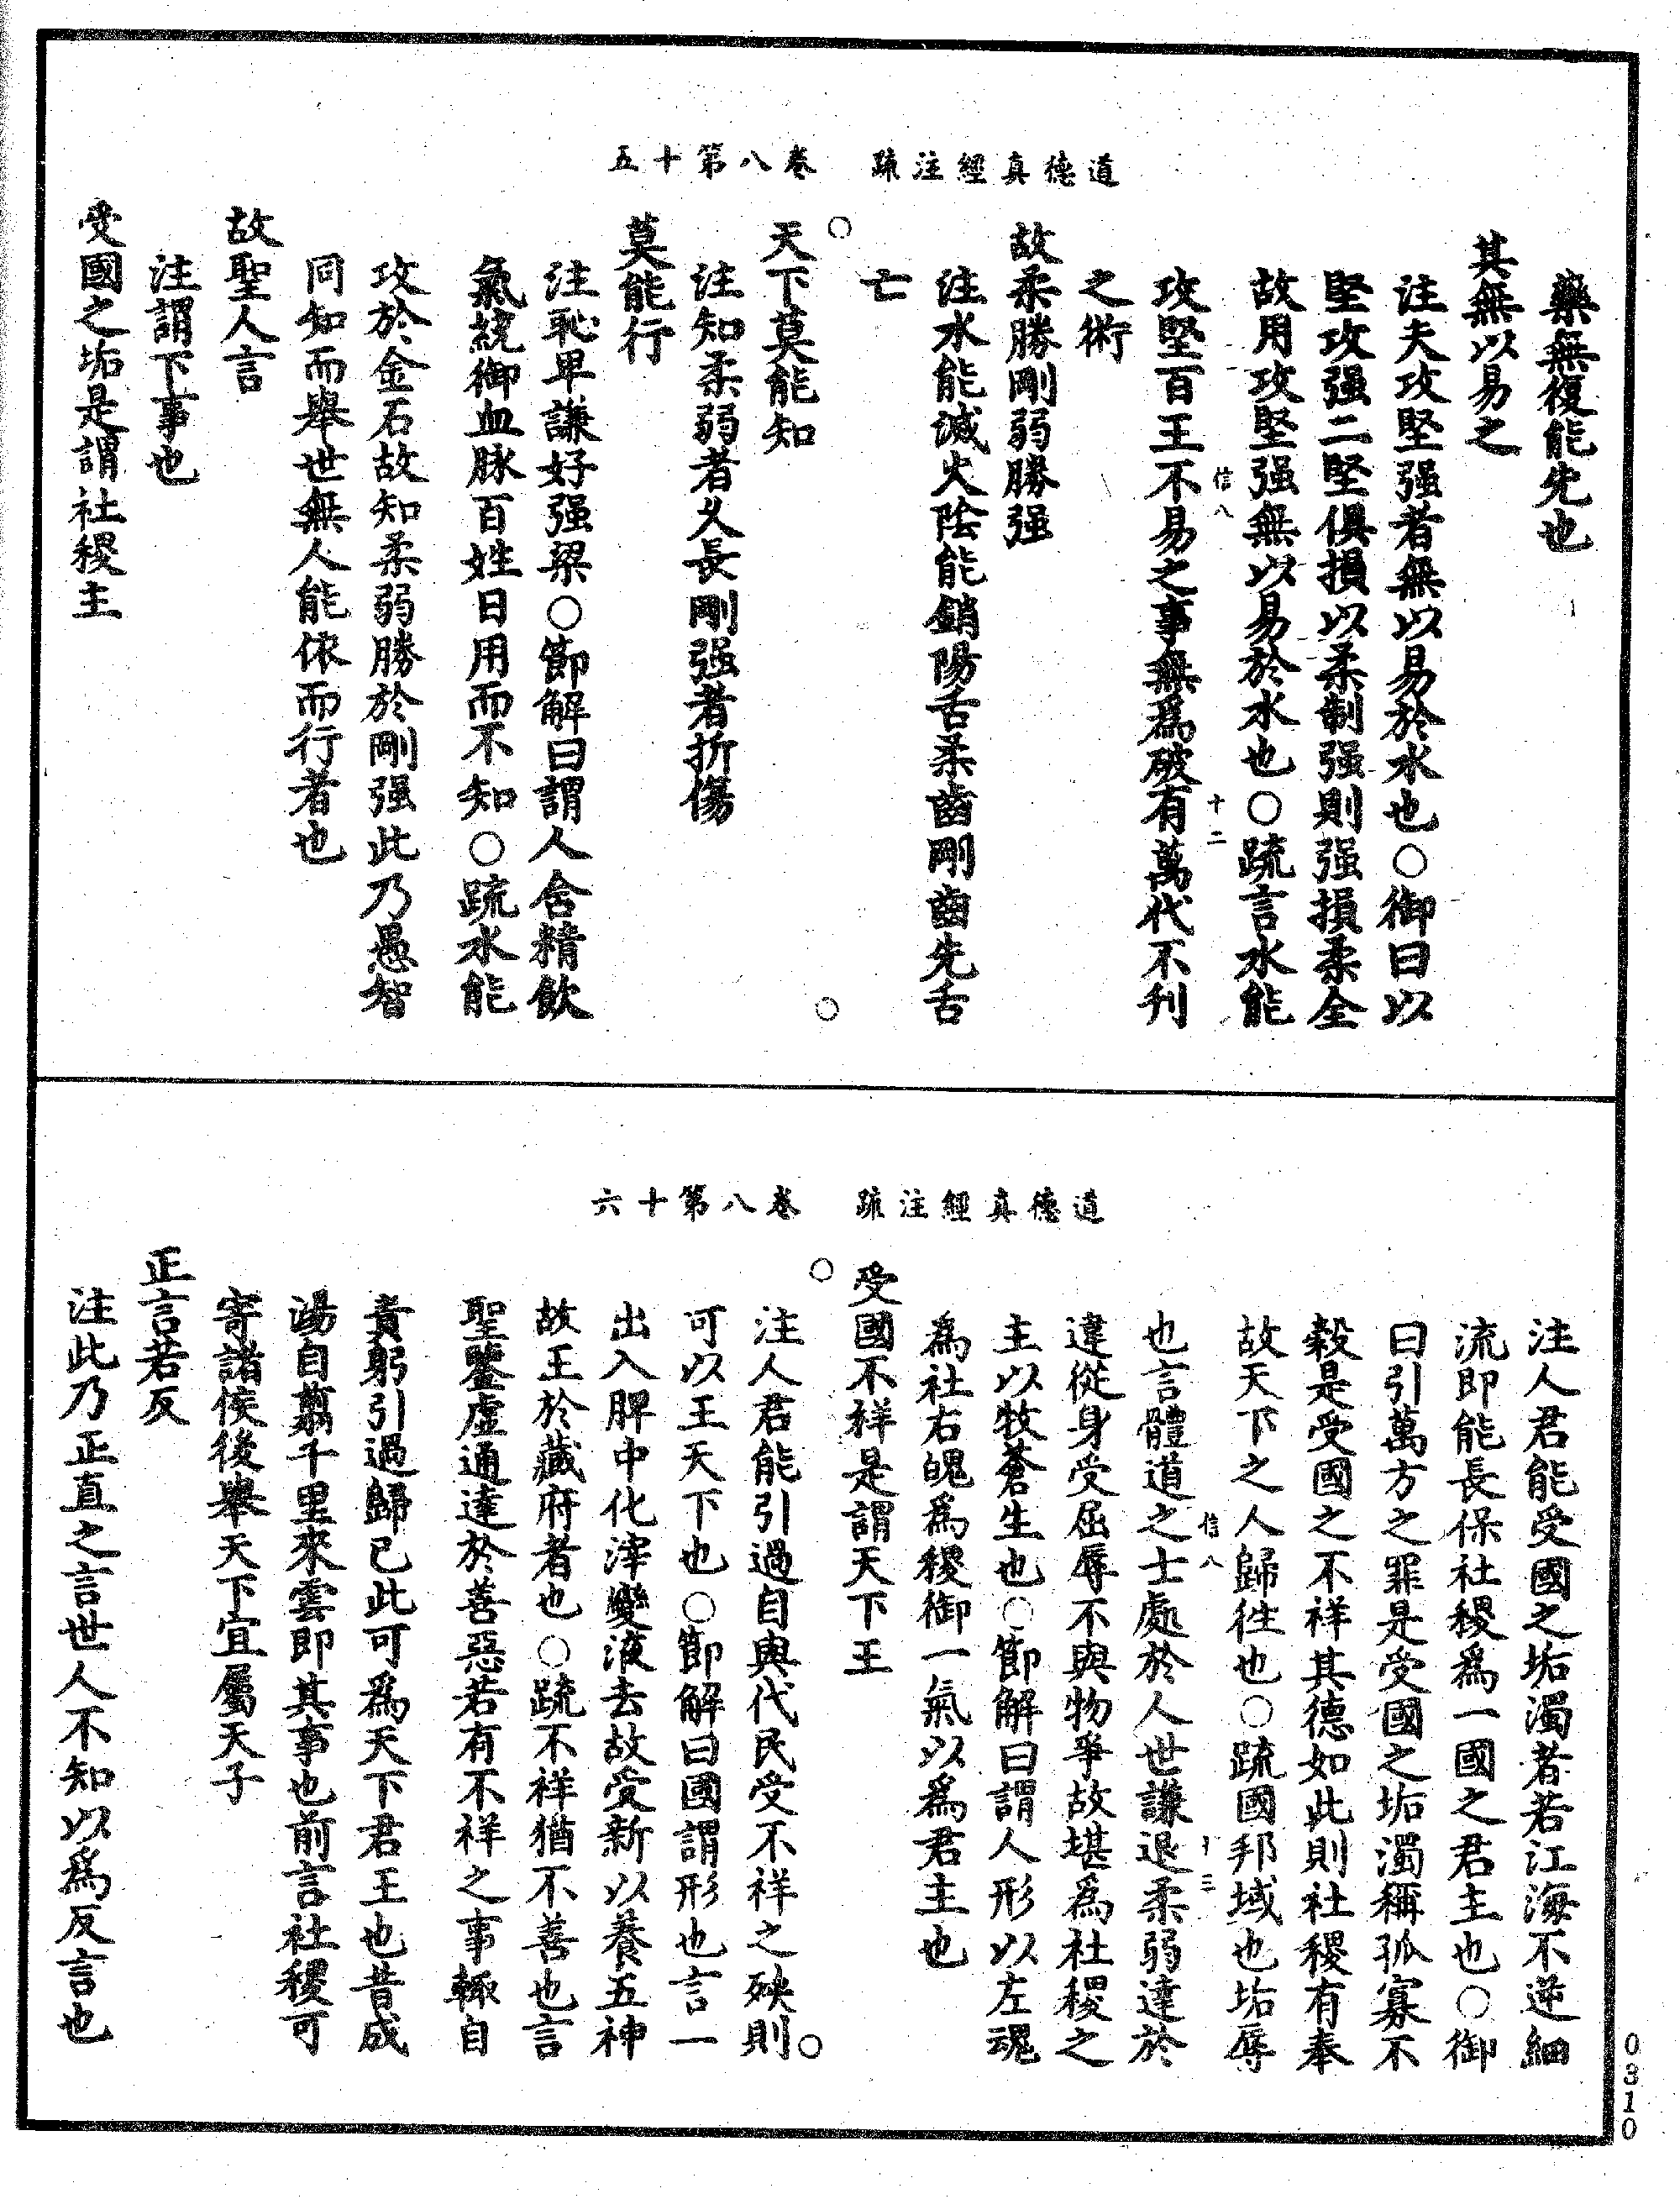 道德真經注疏　卷八第十五
藥無復能先也
其無以易之
注夫攻堅强者無以易於水也○御曰以
堅攻强二堅俱損以柔制强則强損柔全
故用攻堅强無以易於水也○疏言水能
信八　十二
攻堅百王不易之事無爲破有萬代不刊
之術
故柔勝剛弱勝强
注水能滅火陰能銷陽舌柔齒剛齒先舌
亡
天下莫能知
注知柔弱者久長剛强者折傷
莫能行
注恥卑謙好强梁○節解曰謂人舍精飲
氣統御血脉百姓日用而不知○疏水能
攻於金石故知柔弱勝於剛强此乃愚智
同知而舉世無人能依而行者也
故聖人言
注謂下事也
受國之垢是謂社稷主
道德真經注疏　卷八第十六
注人君能受國之垢濁者若江海不逆細
流即能長保社稷爲一國之君主也○御
曰引萬方之罪是受國之垢濁稱孤寡不
穀是受國之不祥其德如此則社稷有奉
故天下之人歸徃也○疏國邦域也垢辱
信八　十三
也言體道之士處於人世謙退柔弱達於
違從身受屈辱不與物爭故堪爲社稷之
主以牧蒼生也○節解曰謂人形以左魂
爲社右魄爲稷御一氣以爲君主也
受國不祥是謂天下王
注人君能引過自與代民受不祥之殃則
可以王天下也○節解曰國謂形也言一
出入脾中化滓變液去故受新以養五神
故王於藏府者也○疏不祥猶不善也言
聖鑒虛通達於善惡若有不祥之事輒自
責躬引過歸己此可爲天下君王也昔成
湯自翦千里來雲即其事也前言社稷可
寄諸侯後舉天下宜屬天子
正言若反
注此乃正直之言世人不知以爲反言也
0310